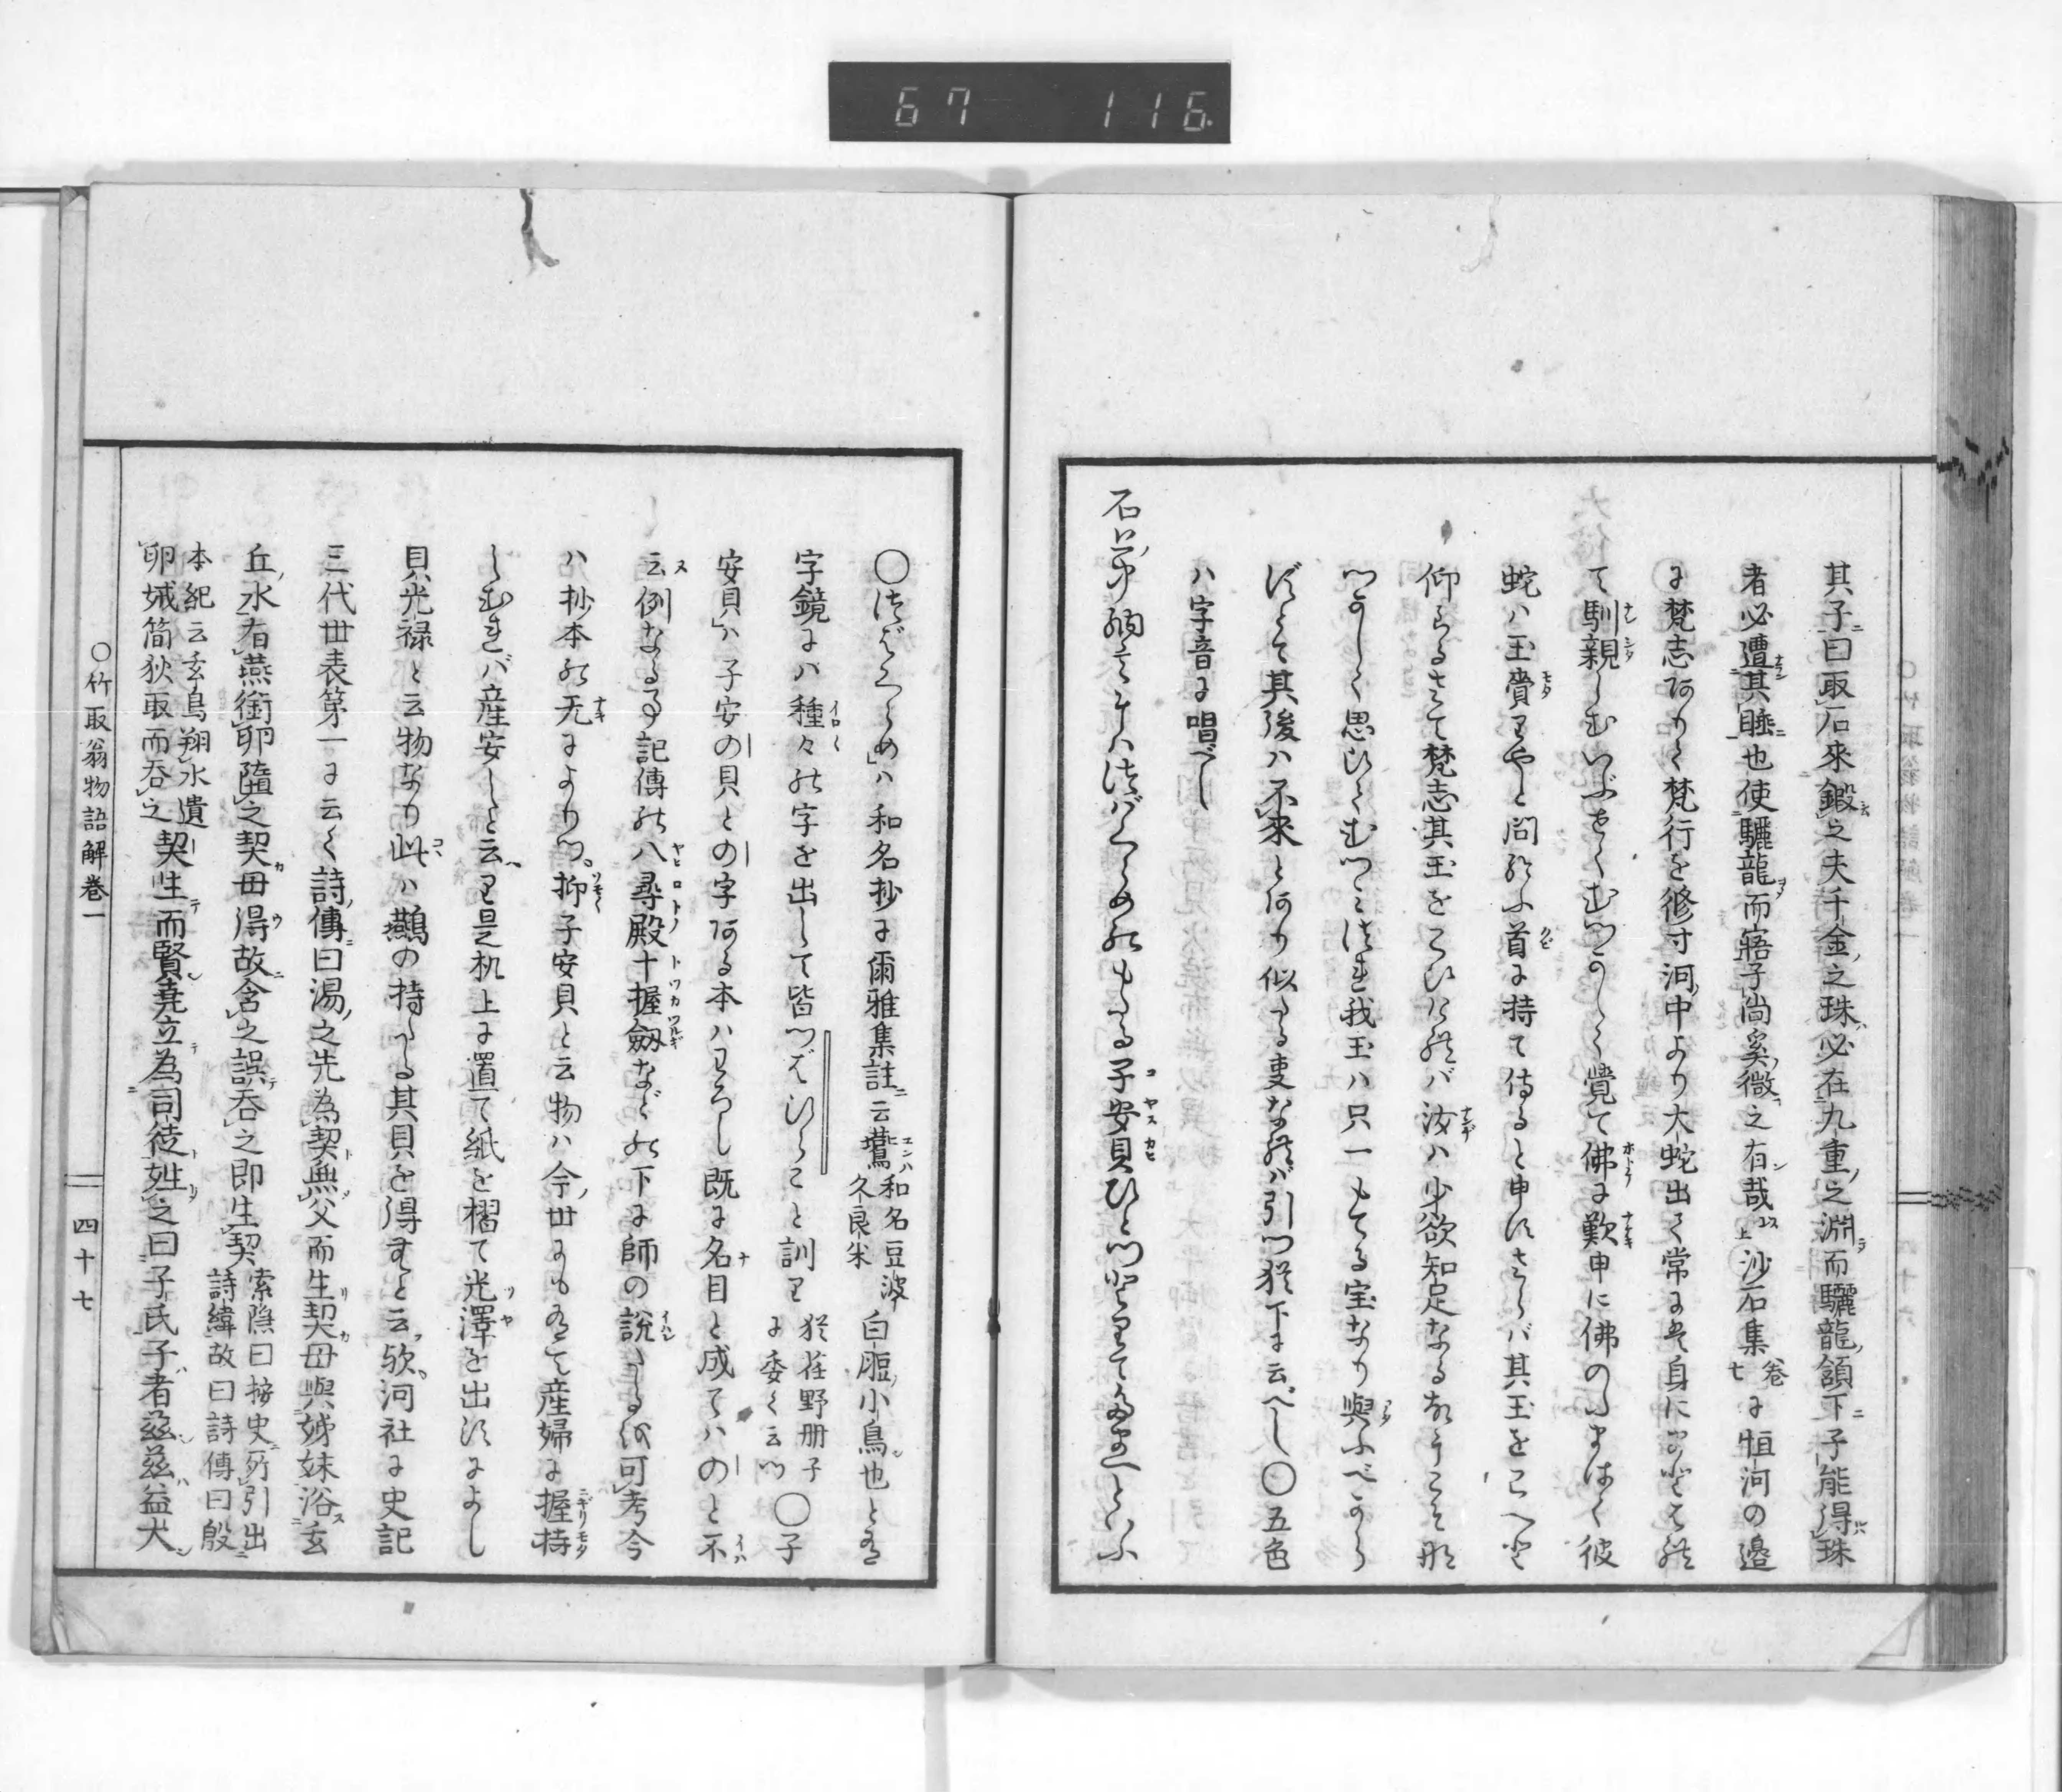 67 116
其子曰取石來鍛之夫千金之珠必在九重之淵而驪龍頷下子能得珠
者必遭其睡也使驪龍而寤子尚奚微之有哉上○沙石集卷七に恒河の邊
に梵志ありて梵行を修す河中より大蛇出て常には身にまとはれ
て馴親しむいぶせくむつかしく覺て佛に歎申に佛のたまはく彼
蛇ハ玉賷りやと問給ふ首に持て侍ると申すさらバ其玉をこへと
仰らるさて梵志其玉をこひけれバ汝ハ少欲知足なるおうこそ形
つかしく思ひてむつミつれ我玉ハ只一もてる宝なり與ふべから
ずとて其後ハ不來とあり似たる事なれバ引つ猶下に云べし○五色
ハ字音に唱べし
石上中納言にハつばくらめのもたる子安貝ひとつとりてたまへといふ
○つばくらめハ和名抄に爾雅集註云鷰和名豆波久良米白脰小鳥也とあり
字鏡にハ種々の字を出して皆つばひらこと訓り猶荏野册子に委く云つ○子
安貝ハ子安の貝との字ある本ハわろし既に名目と成てハのと不
云例なる事記傳の八尋殿十握劔などの下に師の説たるを可考今
ハ抄本の无によりつ抑子安貝と云物ハ今世にもありて産婦に握持
しむれバ産安しと云り是机上に置て紙を褶て光澤を出すによし
貝光禄と云物なり此ハ鷰の持たる其貝を得むと云歟河社に史記
三代世表第一に云く詩傳曰湯之先為契無父而生契母與姊妹浴玄
丘水有燕銜卵墮之契母得故含之誤吞之即生契索隱曰按史所引出詩緯故曰詩傳曰殷
本紀云玄鳥翔水遺卵娀簡狄取而吞之契生而賢堯立為司徒姓之曰子氏子者茲茲益大
○竹取翁物語解卷一
四十七